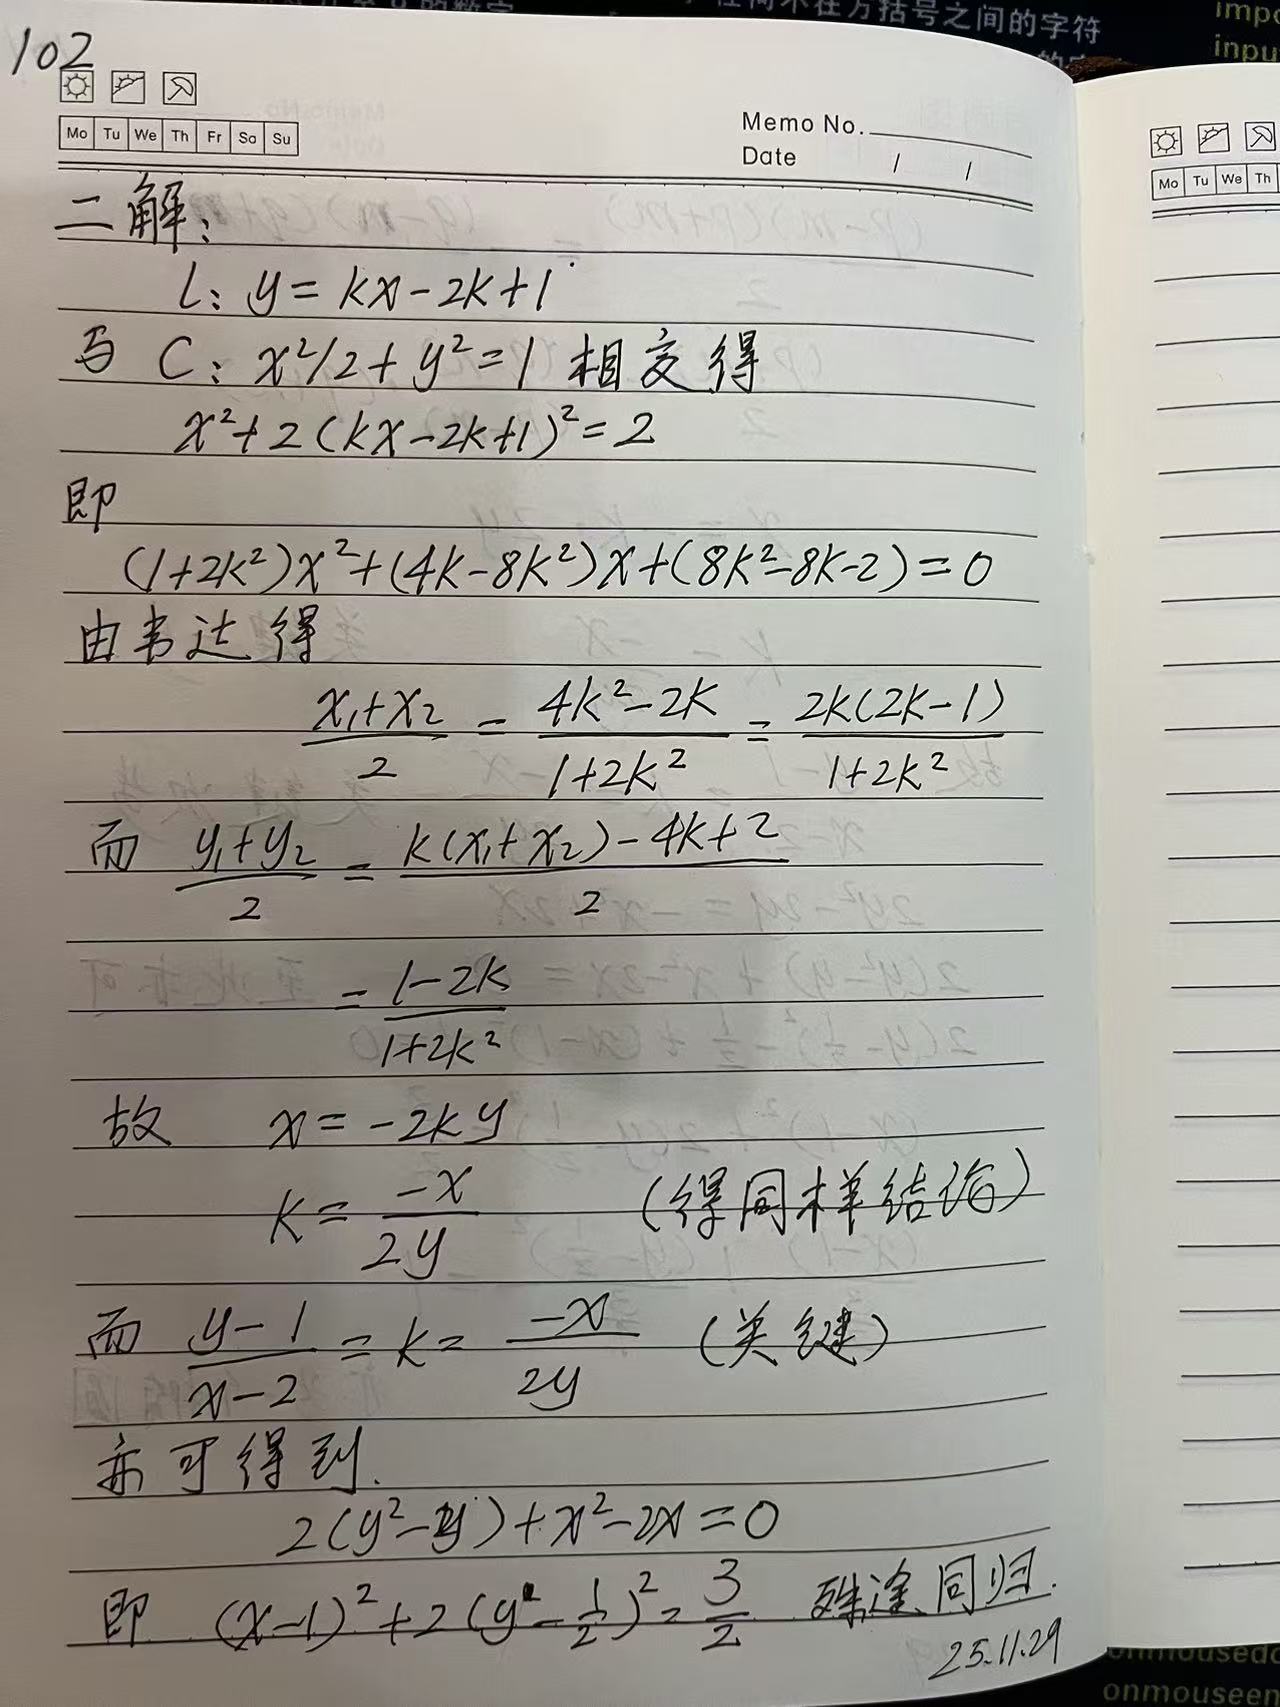 在方括号之间的字符
impo
inpu
102
Mo Tu We Th Fr Sa Su
Memo No.
Date / /
Mo Tu We Th
二解:
L: y = kx-2k+1
与 C: x²/2 + y² = 1 相交得
x²+2(kx-2k+1)² = 2
即
(1+2k²)x²+(4k-8k²)x+(8k²-8k-2)=0
由韦达得
(x₁+x₂)/2 = (4k²-2k)/(1+2k²) = 2k(2k-1)/(1+2k²)
而 (y₁+y₂)/2 = (k(x₁+x₂)-4k+2)/2
= (1-2k)/(1+2k²)
故 x = -2ky
k = -x/2y (得同样结论)
而 (y-1)/(x-2) = k = -x/2y (关键)
亦可得到.
2(y²-y)+x²-2x=0
即 (x-1)²+2(y-1/2)² = 3/2 殊途同归.
25.11.29
onmoused
onmouseen